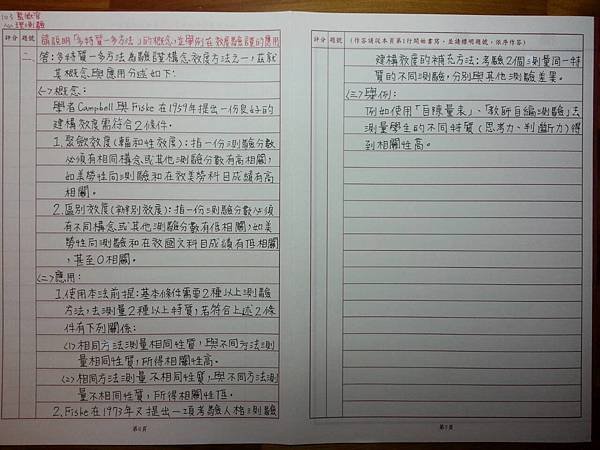 103 監獄官
心理測驗
評分 題號
請說明「多特質-多方法」的概念,並舉例在效度驗證的應用
二、
答:多特質-多方法為驗證構念效度方法之一,茲就
其概念與應用分述如下:
(一)概念:
學者Campbell與Fiske在1959年提出一份良好的
建構效度需符合2條件。
1.聚斂效度(輻和性效度):指一份測驗分數
必須有相同構念或其他測驗分數有高相關,
如美勞性向測驗和在效美勞科目成績有高
相關。
2.區別效度(辨別效度):指一份測驗分數必須
有不同構念或其他測驗分數有低相關,如美
勞性向測驗和在效國文科目成績有低相關
,甚至0相關。
(二)應用:
1.使用本法前提:基本條件需要2種以上測驗
方法,去測量2種以上特質,若符合上述2條
件有下列關係:
(1)相同方法測量相同性質,與不同方法測
量相同性質,所得相關性高。
(2)相同方法測量不相同性質,與不同方法測
量不相同性質,所得相關性低。
2.Fiske在1973年又提出一項考驗人格測驗
第6頁
評分 題號 (作答請從本頁第1行開始書寫,並請標明題號,依序作答)
建構效度的補充方法:考驗2個測量同一特
質的不同測驗,分別與其他測驗差異。
(三)舉例:
例如使用「自陳量表」、「教師自編測驗」去
測量學生的不同特質(思考力、判斷力)得
到相關性高。
第7頁